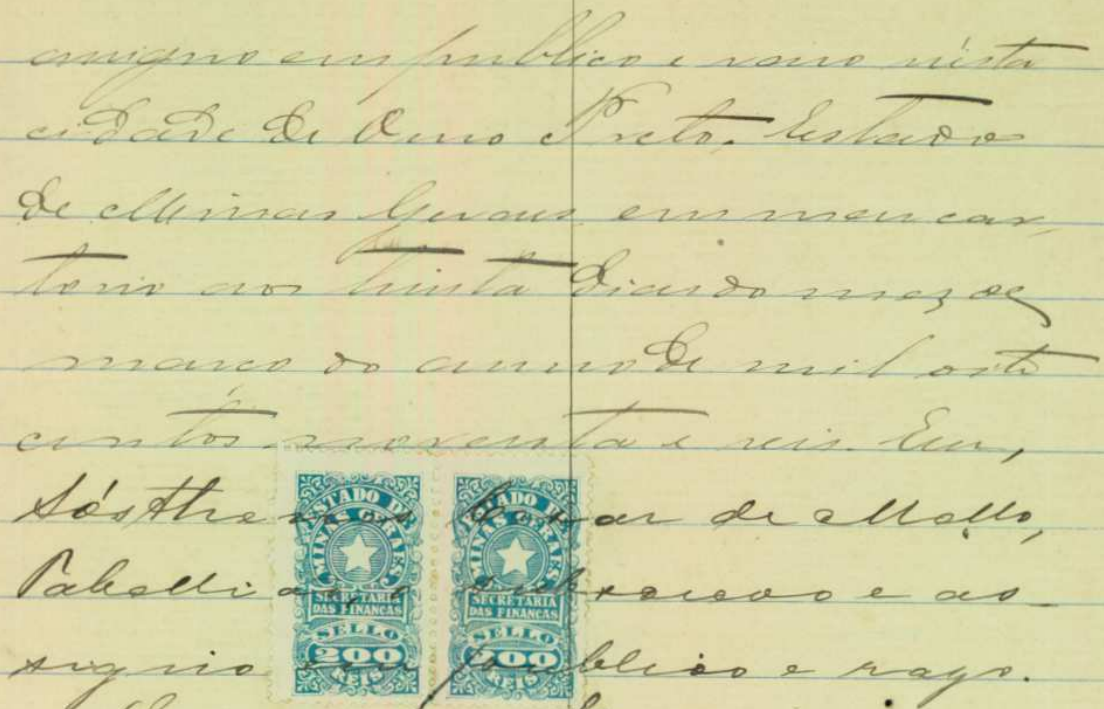 assigno em publico e raso nésta
cidade de Ouro Preto, Estado
de Minas Geraes em meu car
torio aos trinta dias do mez de
março do anno de mil oito
centos noventa e seis. Eu,
Sósthenes de Mello,
Tabellião subscrevo e as-
signo em publico e raso.
ESTADO DE
MINAS GERAES
SECRETARIA
DAS FINANCAS
SELLO
200
REIS
ESTADO DE
MINAS GERAES
SECRETARIA
DAS FINANCAS
SELLO
200
REIS